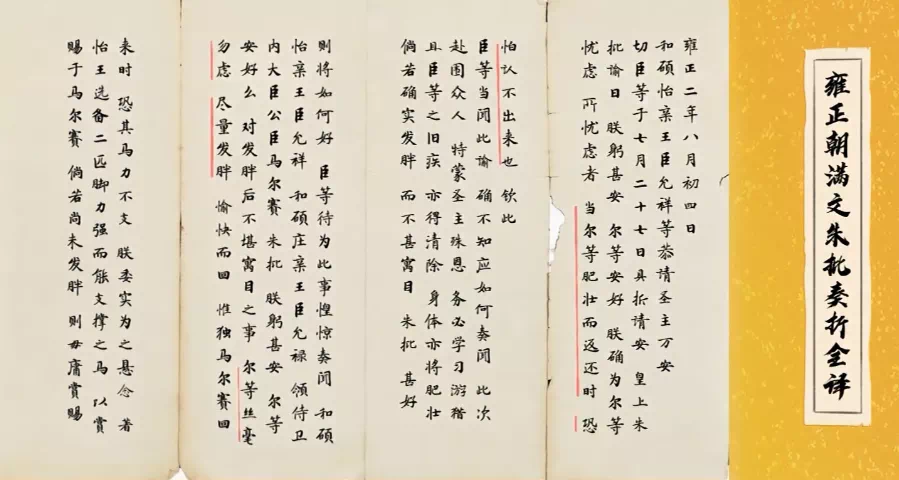 雍正朝满文朱批奏折全译
雍正二年八月初四日
和硕怡亲王臣允祥等恭请圣主万安
切臣等于七月二十七日具折请安 皇上朱
批谕日 朕躬甚安 尔等安好 朕确为尔等
忧虑 所忧虑者 当尔等肥壮而返还时 恐
怕认不出来也 钦此
臣等当闻此谕 确不知应如何奏闻 此次
赴围众人 特蒙圣主殊恩 务必学习游猎
且臣等之旧疾 亦得清除 身体亦将肥壮
倘若确实发胖 而不甚寓目 朱批 甚好
则将如何好 臣等待为此事惶惊奏闻 和硕
怡亲王臣允祥 和硕庄亲王臣允禄 领侍卫
内大臣公臣马尔赛 朱批 朕躬甚安 尔等
安好么 对发胖后不堪寓目之事 尔等丝毫
勿虑 尽量发胖 愉快而回 惟独马尔赛回
来时 恐其马力不支 朕委实为之悬念 著
怡王选备二匹脚力强而能支撑之马 以赏
赐于马尔赛 倘若尚未发胖 则毋庸赏赐